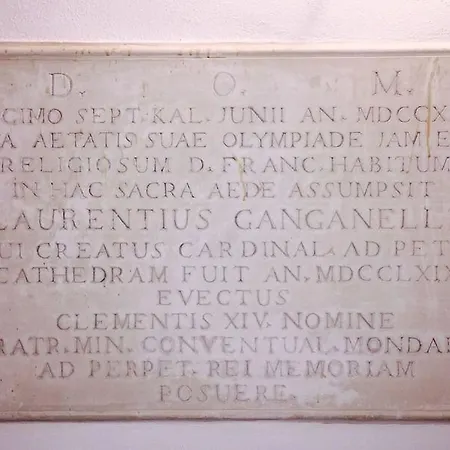 D. O. M.
CIMO SEPT. KAL. JUNII AN. MDCCX
A AETATIS SUAE OLYMPIADE JAM E
RELIGIOSUM D. FRANC. HABITUM
IN HAC SACRA AEDE ASSUMPSIT
LAURENTIUS GANGANELL
UI CREATUS CARDINAL. AD PET
CATHEDRAM FUIT AN. MDCCLXIX
EVECTUS
CLEMENTIS XIV. NOMINE
RATR. MIN. CONVENTUAL. MONDA
AD PERPET. REI MEMORIAM
POSUERE.